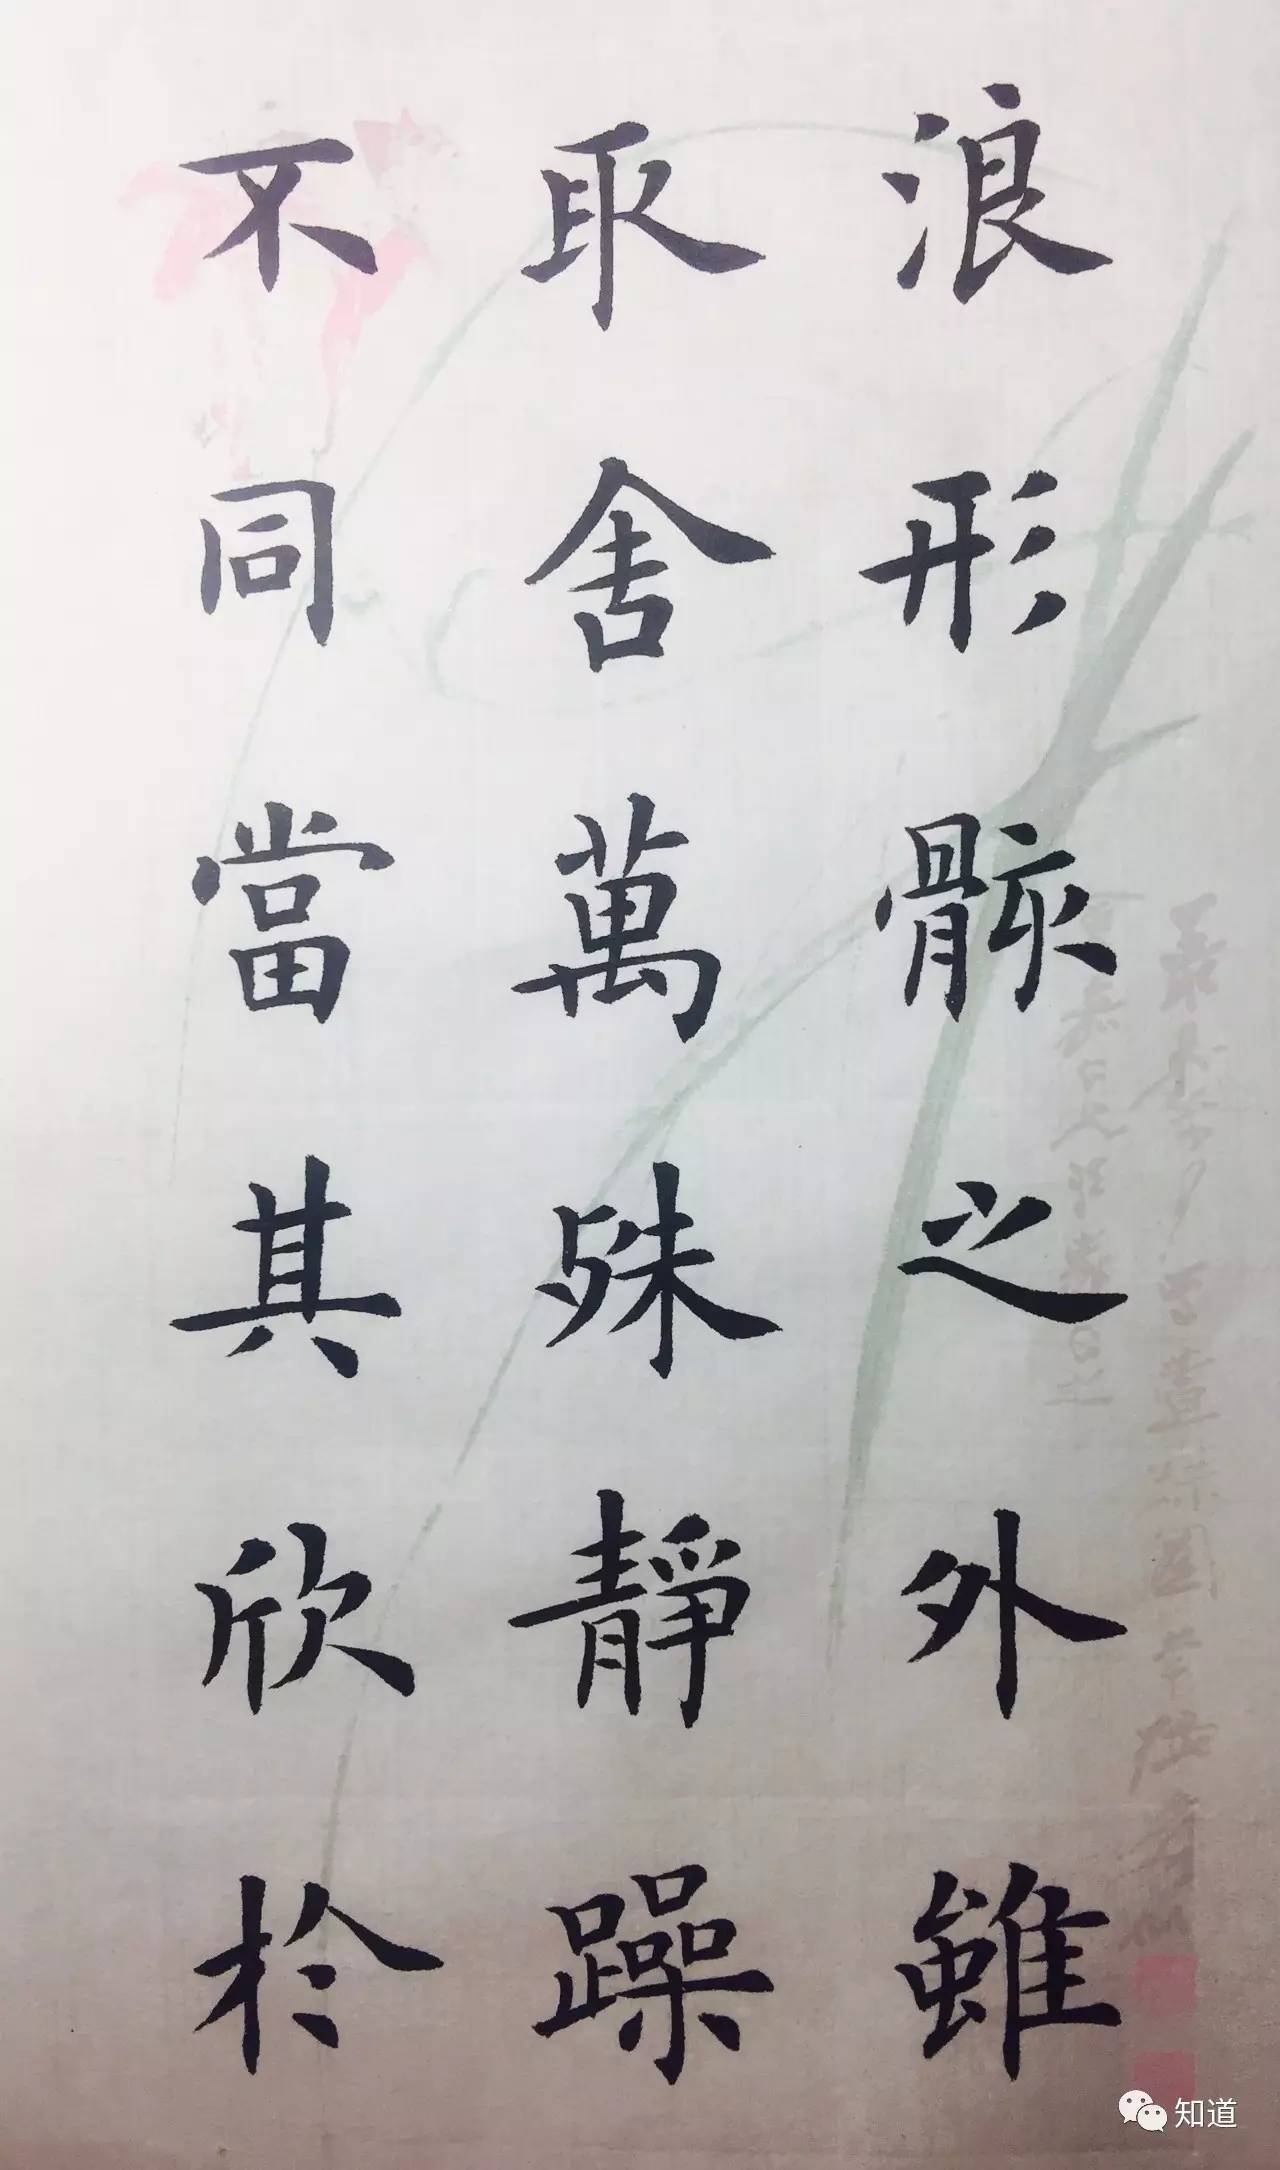 浪形骸之外雖
取舍萬殊靜躁
不同當其欣於
知道